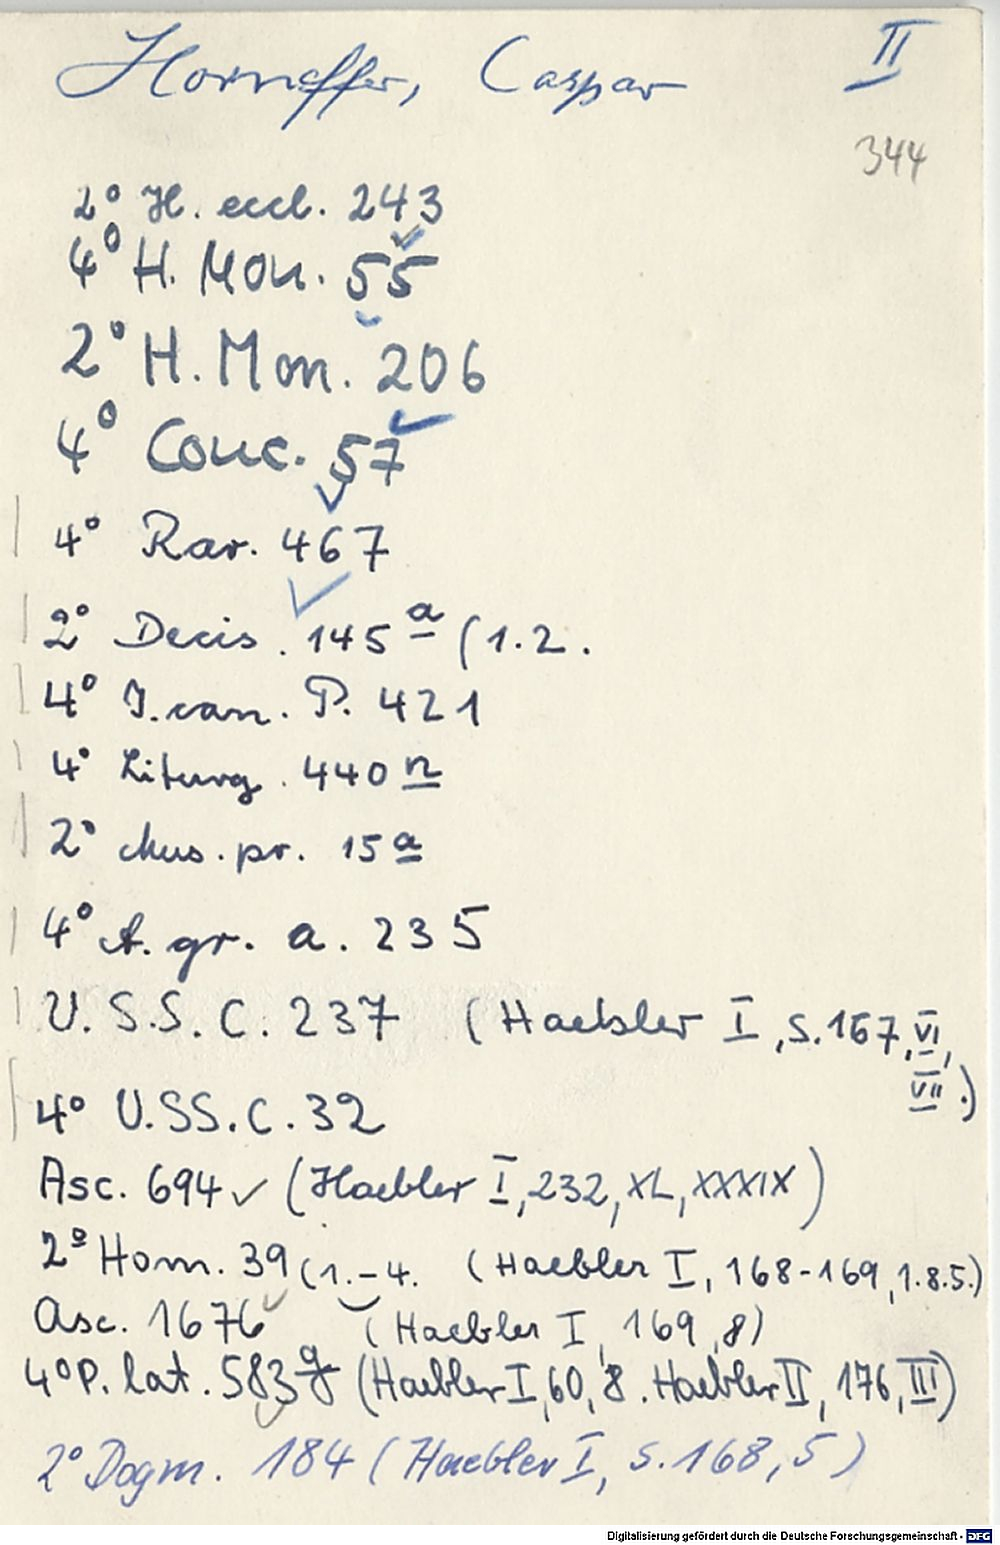 Horneffer, Caspar II
344
2° H. eccl. 243
4° H. Mon. 55
2° H. Mon. 206
4° Conc. 57
4° Rar. 467
2° Decis. 145 a (1.2.
4° J. can. P. 421
4° Liturg. 440 n
2° Mus. pr. 15 a
4° A. gr. a. 235
V. S.S. C. 237 (Haebler I, S. 167, VI,
VII.)
4° V. SS. C. 32
Asc. 694 ✓ (Haebler I, 232, XL, XXXIX)
2° Hom. 39 (1.-4. (Haebler I, 168-169, 1.8.5.)
Asc. 1676 (Haebler I, 169, 8)
4° P. lat. 583 g (Haebler I, 60, 8. Haebler II, 176, III)
2° Dogm. 184 (Haebler I, S. 168, 5)
Digitalisierung gefördert durch die Deutsche Forschungsgemeinschaft - DFG